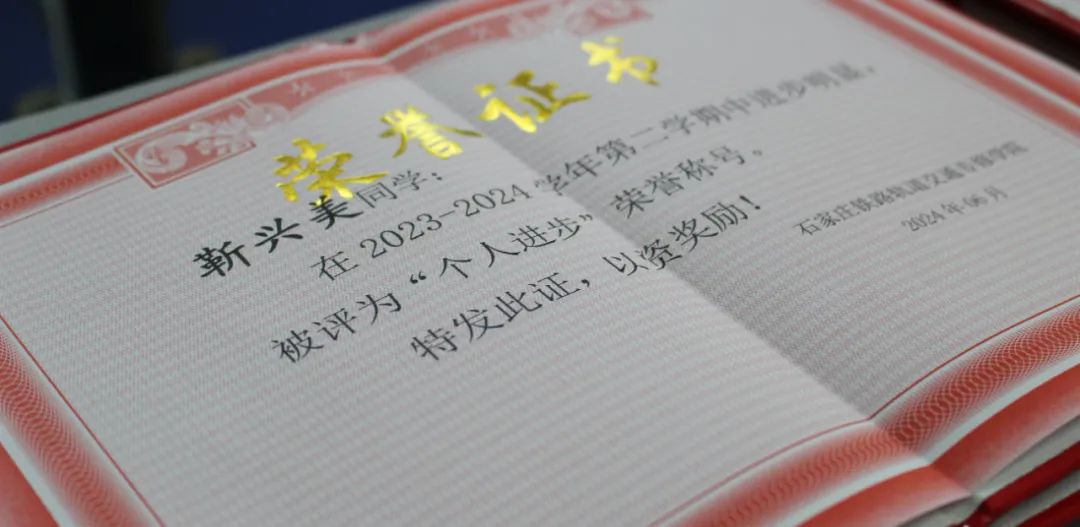 荣誉证书
靳兴美同学：
在2023-2024学年第二学期中进步明显，
被评为“个人进步”荣誉称号。
特发此证，以资奖励！
石家庄铁路轨道交通专修学院
2024年06月